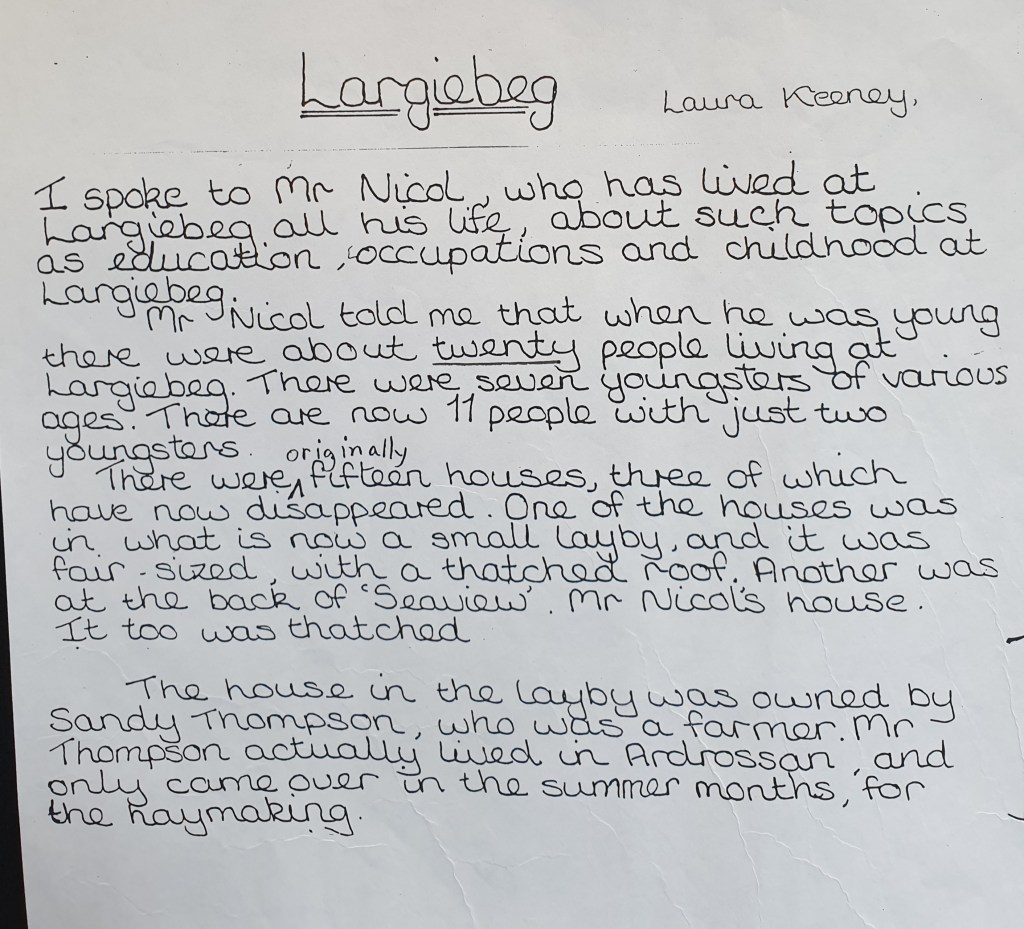 Largiebeg
Laura Keeney,
I spoke to Mr Nicol, who has lived at
Largiebeg all his life, about such topics
as education, occupations and childhood at
Largiebeg.
Mr Nicol told me that when he was young
there were about twenty people living at
Largiebeg. There were seven youngsters of various
ages. There are now 11 people with just two
youngsters.
There were originally fifteen houses, three of which
have now disappeared. One of the houses was
in what is now a small layby, and it was
fair-sized, with a thatched roof. Another was
at the back of 'Seaview'. Mr Nicol's house.
It too was thatched
The house in the layby was owned by
Sandy Thompson, who was a farmer. Mr
Thompson actually lived in Ardrossan, and
only came over in the summer months, for
the haymaking.